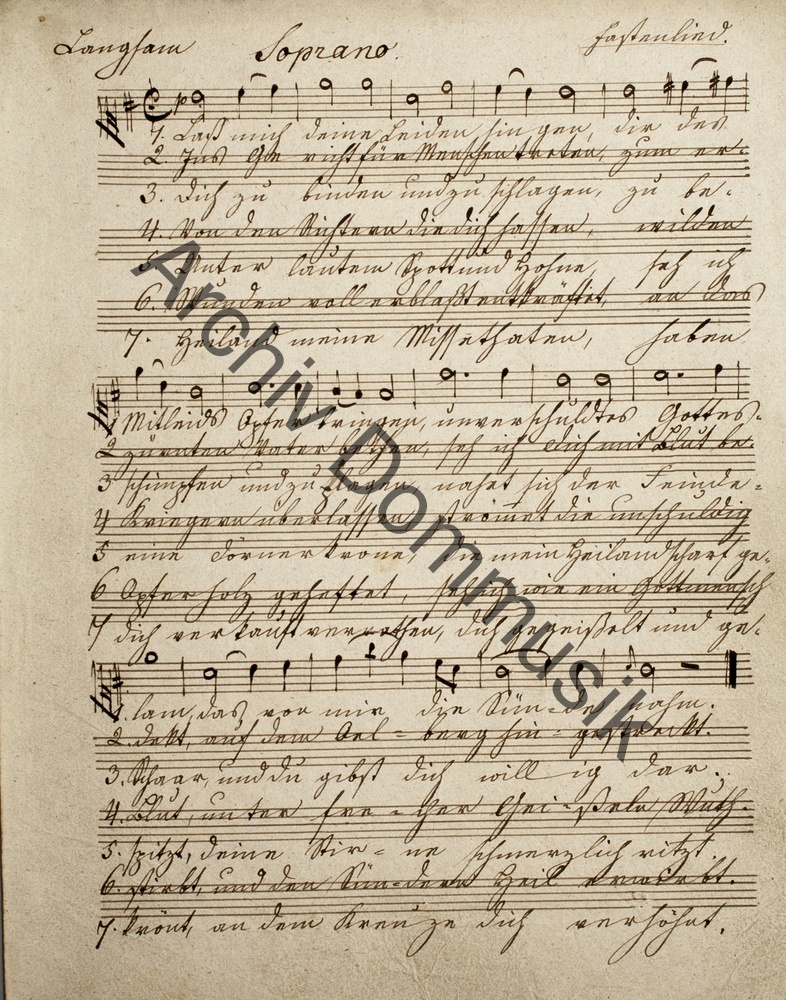 Langsam Soprano. Fastenlied.
1. Laß mich deine Leiden singen, dir des
2. Ins Gericht für Menschen treten, zum er-
3. Dich zu binden und zu schlagen, zu be-
4. Von den Richtern die dich hassen, wilden
5 Unter lautem Spott und Hohne, seh ich
6. Wunden voll erblaßt entkräftet, an das
7. Heiland meine Missethaten, haben
1 Mitleids Opfer bringen, unverschuldtes Gottes-
2 zürnten Vater bethen, seh ich dich mit Blut be-
3 schimpfen und zu plagen, nahet sich der Feinde-
4 Kriegern überlassen, strömet die unschuldig
5 eine Dörnerkrone, die mein Heiland scharf ge-
6 Opferholz geheftet, seh ich wie ein Gottmensch
7 dich verkauft verrathen, dich gegeißelt und ge-
1. lam, das von mir die Sün-de nahm.
2. dekt, auf dem Oel-berg hin-gestreckt.
3. Schaar, und du gibst dich willig dar.
4. Blut, unter fre-cher Gei-ßeln Wuth.
5. spitzt, deine Stir-ne schmerzlich ritzt.
6. stirbt, und den Sün-dern Heil erwirbt.
7. krönt, an dem Kreuze dich verhöhnt.
Archiv Dommusik